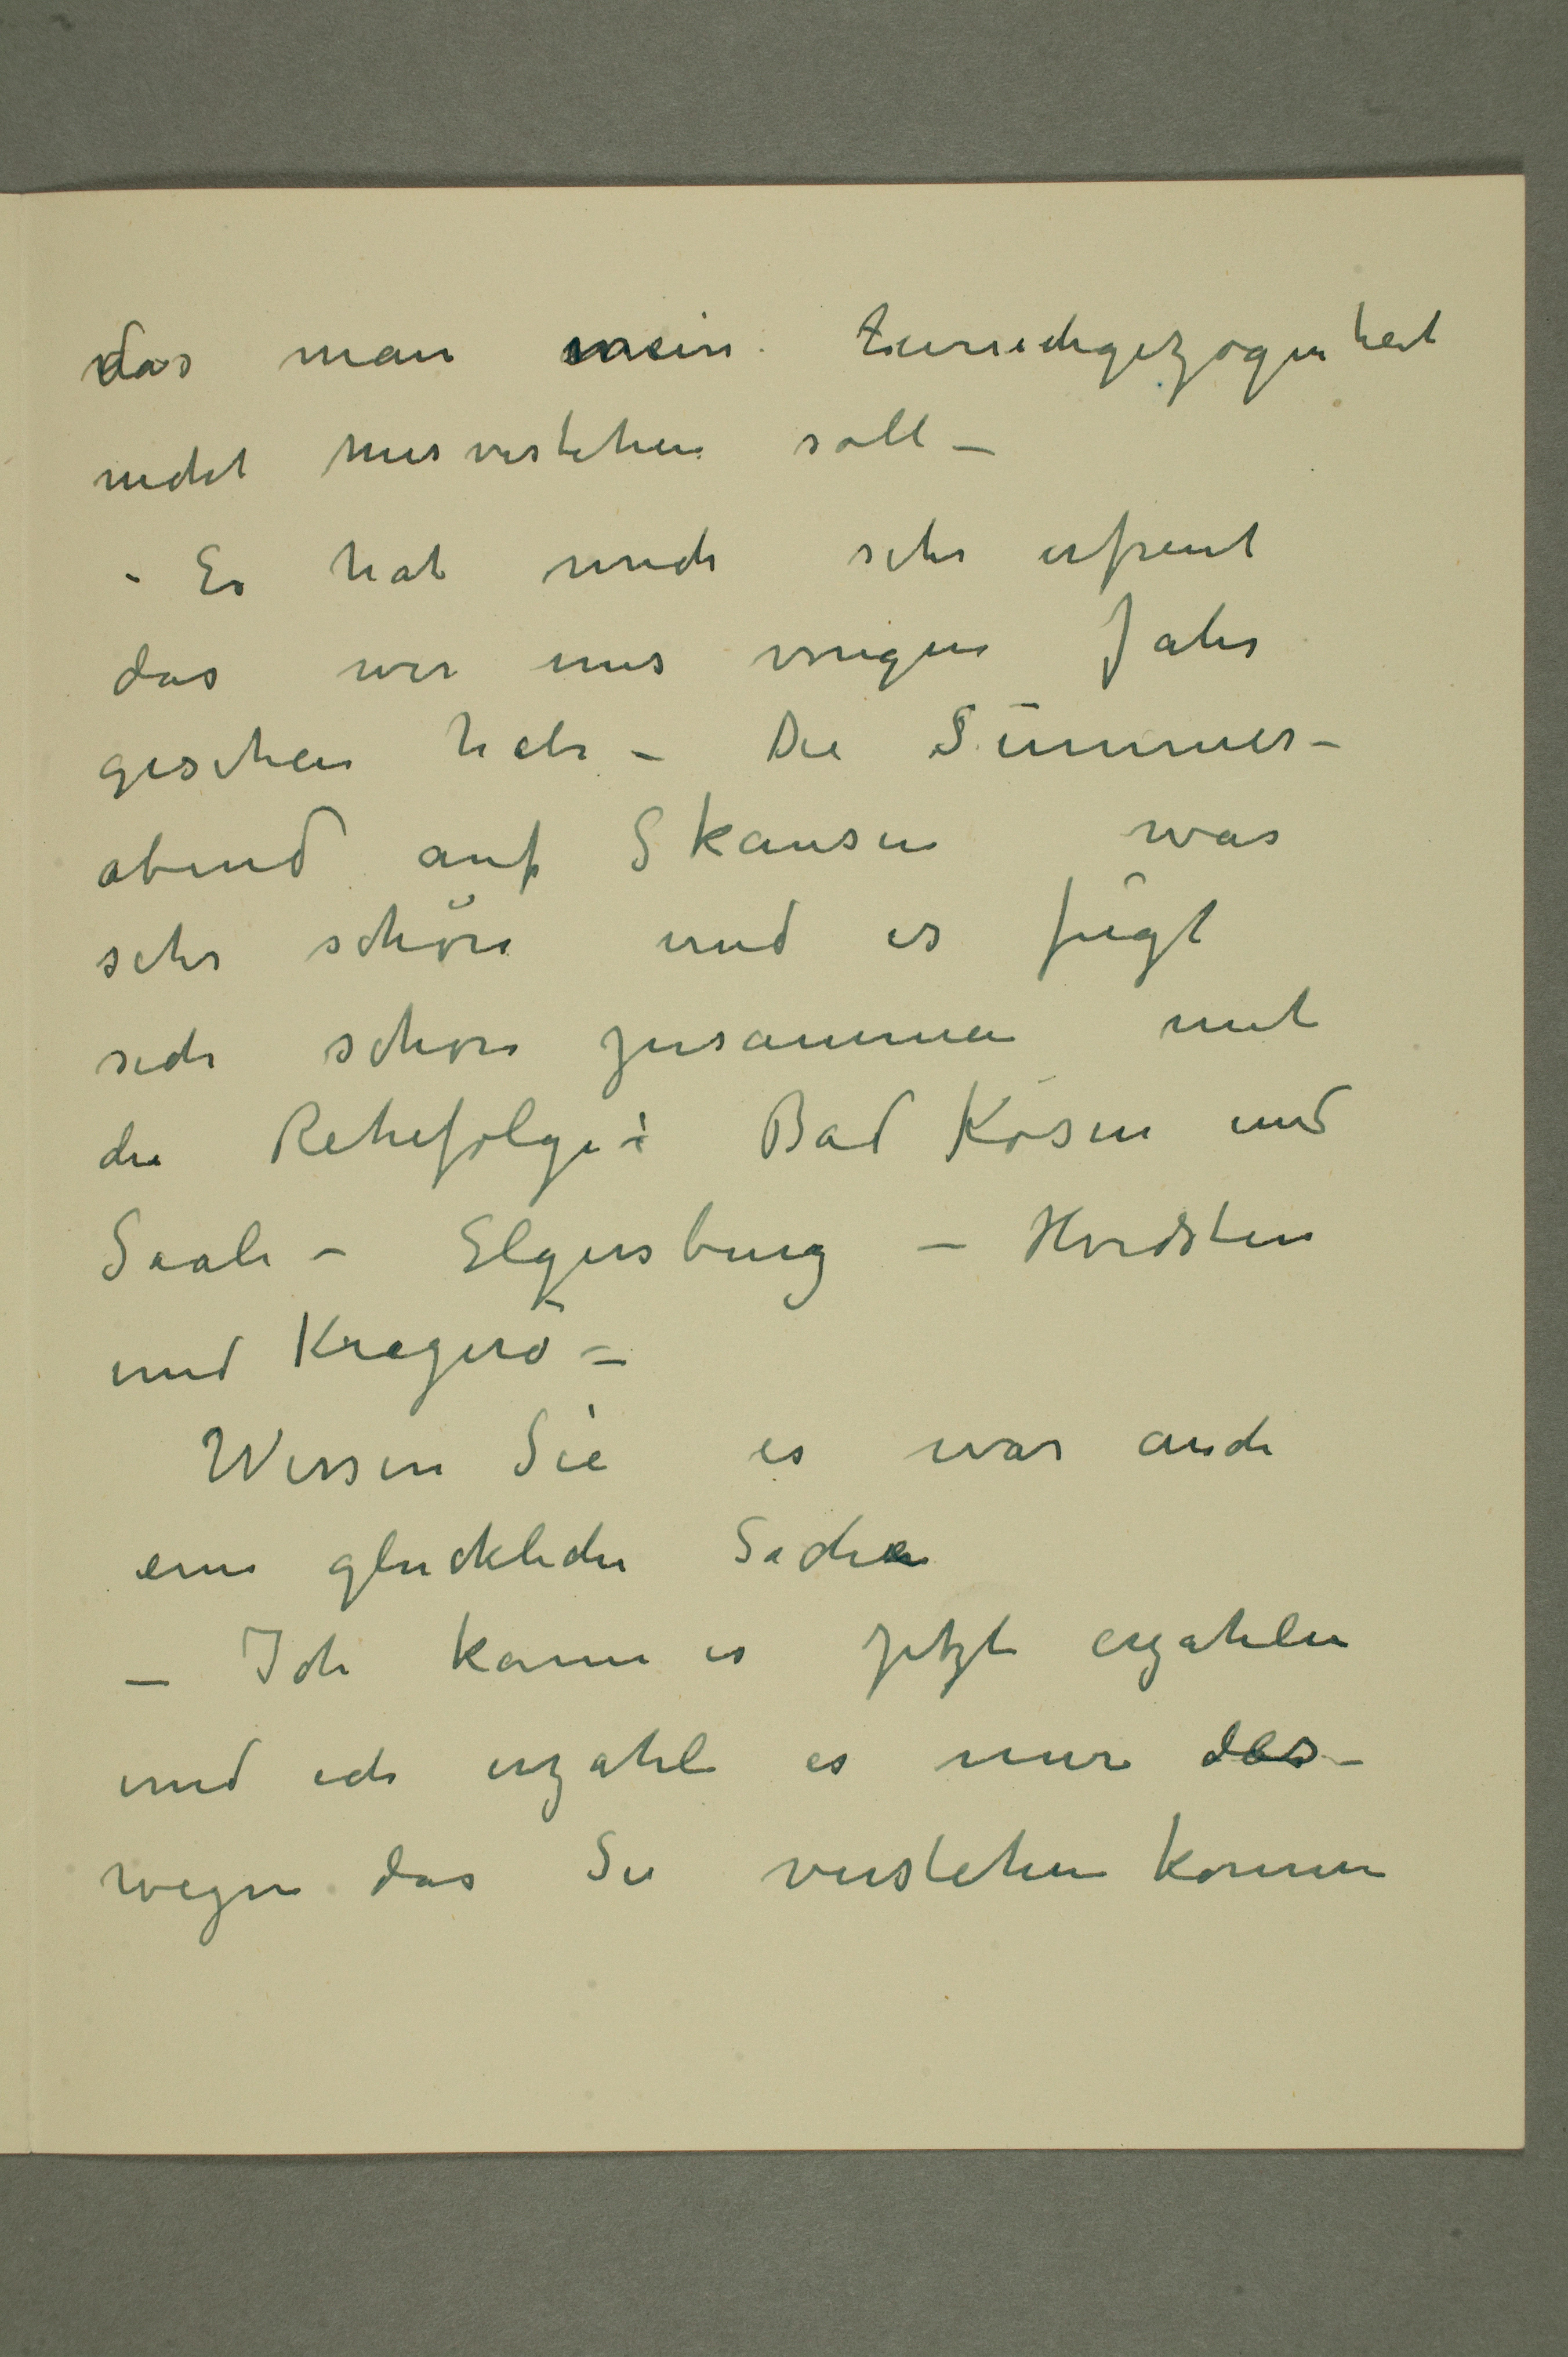 das man mein Zurückgezogenheit
nicht misverstehen soll –
- Es hat mich sehr erfreut
das wir uns vorigen Jahr
gesehen habe – Die Sūmmer-
abend auf Skansen war
sehr schön und es fügt
sich schon zusammen mit
die Rehefolge: Bad Kösen und
Saale – Elgersburg – Hvidsten
und Kragerö –
Wissen Sie es war auch
eine gluckliche Sache
– Ich kann es jetzt erzahlen
und ich erzahle es nur des-
wegen das Sie verstehen konnen